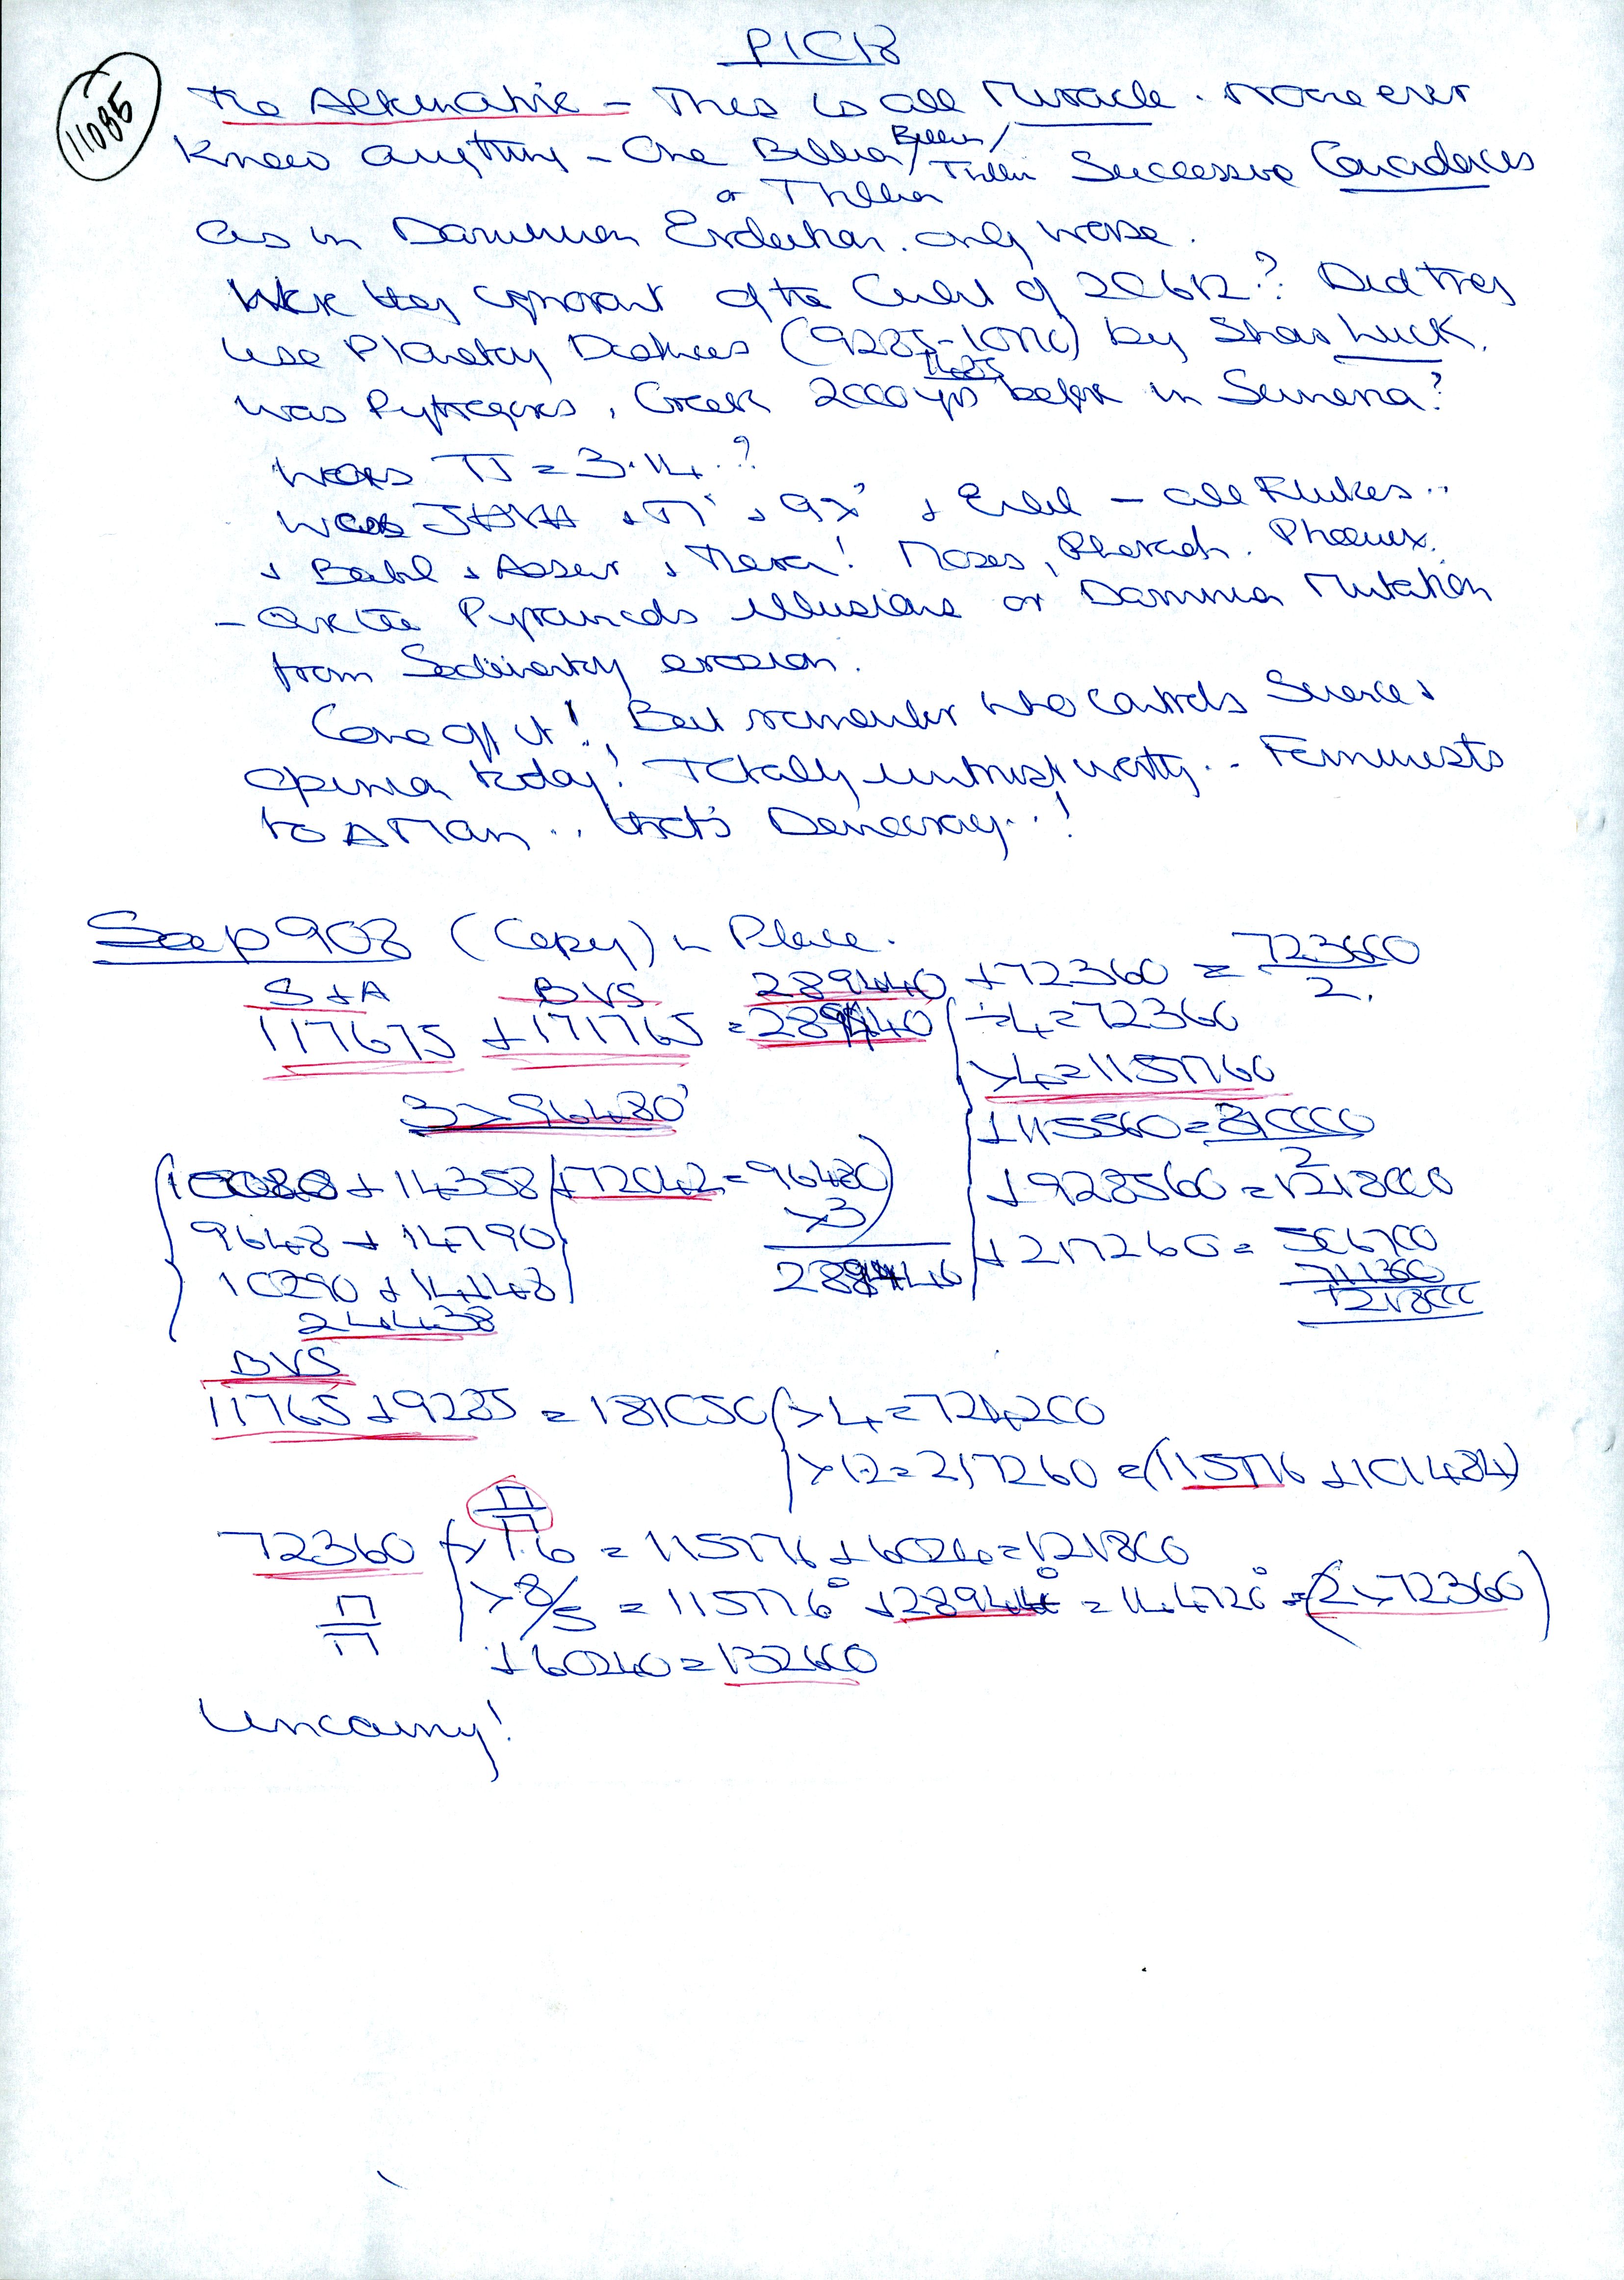 P1018
11085
The Alternative - This is all Miracle. None ever
Knew anything - One Billion / Billion /
or Trillion Trillion Successive Coincidences
as in Darwinian Evolution. only worse.
Were they ignorant of the Cubit of 20612? Did they
use Planetary Distances (9285-10770) by Sheer Luck.
11625
was Pythagoras, Greek 2000 yrs before in Sumeria?
Was π = 3.14.?
was + π' + 9x' + - all Flukes..
+ Babel + Asser + Thera! Moses, Pharaoh. Phoenix.
- are the Pyramids illusions or Darwinian Mutation
from Sedimentary erosion.
Come off it! But remember who controls Science +
opinion today! Totally untrustworthy.. Feminists
to A Man.. that's Democracy..!
See p 908 (Copy) in Place.
S+A BVS 289440 + 72360 = 723600
2.
117675 + 171765 = 289440 ÷4=72360
×4=1157760
3×96480'
10080 + 14358 + 72042 = 96480
×3
9648 + 14790
10290 + 14148
24438
+928560=
+217260= 506700
711300
1218000
BVS
11765 + 9285 = 181050 ×4=724200
×12=217260 = (115776 + 101484)
Π
Π
72360 ×1.6 = 115776 + 6024 = 121800
×8/5 = 115776° + 28944° = 144720° = (2×72360)
Π
Π
+60240=132600
Uncanny!